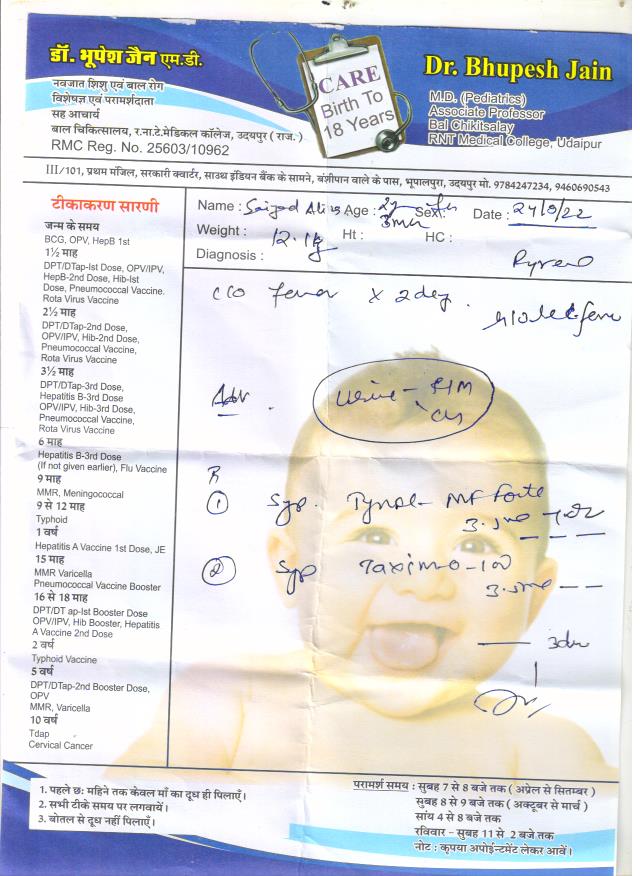 डॉ. भूपेश जैन एम.डी.
नवजात शिशु एवं बाल रोग
विशेषज्ञ एवं परामर्शदाता
सह आचार्य
बाल चिकित्सालय, र.ना.टे.मेडिकल कॉलेज, उदयपुर ( राज. )
RMC Reg. No. 25603/10962
CARE
Birth To
18 Years
Dr. Bhupesh Jain
M.D. (Pediatrics)
Associate Professor
Bal Chikitsalay
RNT Medical College, Udaipur
III/101, प्रथम मंजिल, सरकारी क्वार्टर, साउथ इंडियन बैंक के सामने, बंशीपान वाले के पास, भूपालपुरा, उदयपुर मो. 9784247234, 9460690543
टीकाकरण सारणी
जन्म के समय
BCG, OPV, HepB 1st
1½ माह
DPT/DTap-Ist Dose, OPV/IPV,
HepB-2nd Dose, Hib-Ist
Dose, Pneumococcal Vaccine.
Rota Virus Vaccine
2½ माह
DPT/DTap-2nd Dose,
OPV/IPV, Hib-2nd Dose,
Pneumococcal Vaccine,
Rota Virus Vaccine
3½ माह
DPT/DTap-3rd Dose,
Hepatitis B-3rd Dose
OPV/IPV, Hib-3rd Dose,
Pneumococcal Vaccine,
Rota Virus Vaccine
6 माह
Hepatitis B-3rd Dose
(If not given earlier), Flu Vaccine
9 माह
MMR, Meningococcal
9 से 12 माह
Typhoid
1 वर्ष
Hepatitis A Vaccine 1st Dose, JE
15 माह
MMR Varicella
Pneumococcal Vaccine Booster
16 से 18 माह
DPT/DT ap-Ist Booster Dose
OPV/IPV, Hib Booster, Hepatitis
A Vaccine 2nd Dose
2 वर्ष
Typhoid Vaccine
5 वर्ष
DPT/DTap-2nd Booster Dose,
OPV
MMR, Varicella
10 वर्ष
Tdap
Cervical Cancer
Name : Age : Sex: Date :
Weight : 12.1kg Ht : HC :
Diagnosis :
c/o fever x 2day.
Adv
Urine - R/M
C/S
R
1 Syp. MF Forte
3.5ml
2 Syp Taxim-O-100
3.5ml
1. पहले छः महिने तक केवल माँ का दूध ही पिलाएँ।
2. सभी टीके समय पर लगवायें।
3. बोतल से दूध नहीं पिलाएँ।
परामर्श समय : सुबह 7 से 8 बजे तक ( अप्रेल से सितम्बर )
सुबह 8 से 9 बजे तक ( अक्टूबर से मार्च )
सांय 4 से 8 बजे तक
रविवार - सुबह 11 से 2 बजे तक
नोट : कृपया अपोईन्टमेंट लेकर आवें।